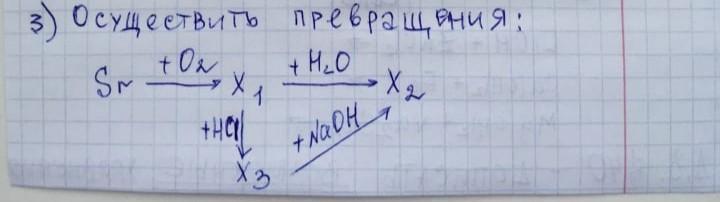 3) Осуществить превращения:
Sr +O2 X1 +H2O X2
+HCl +NaOH
X3